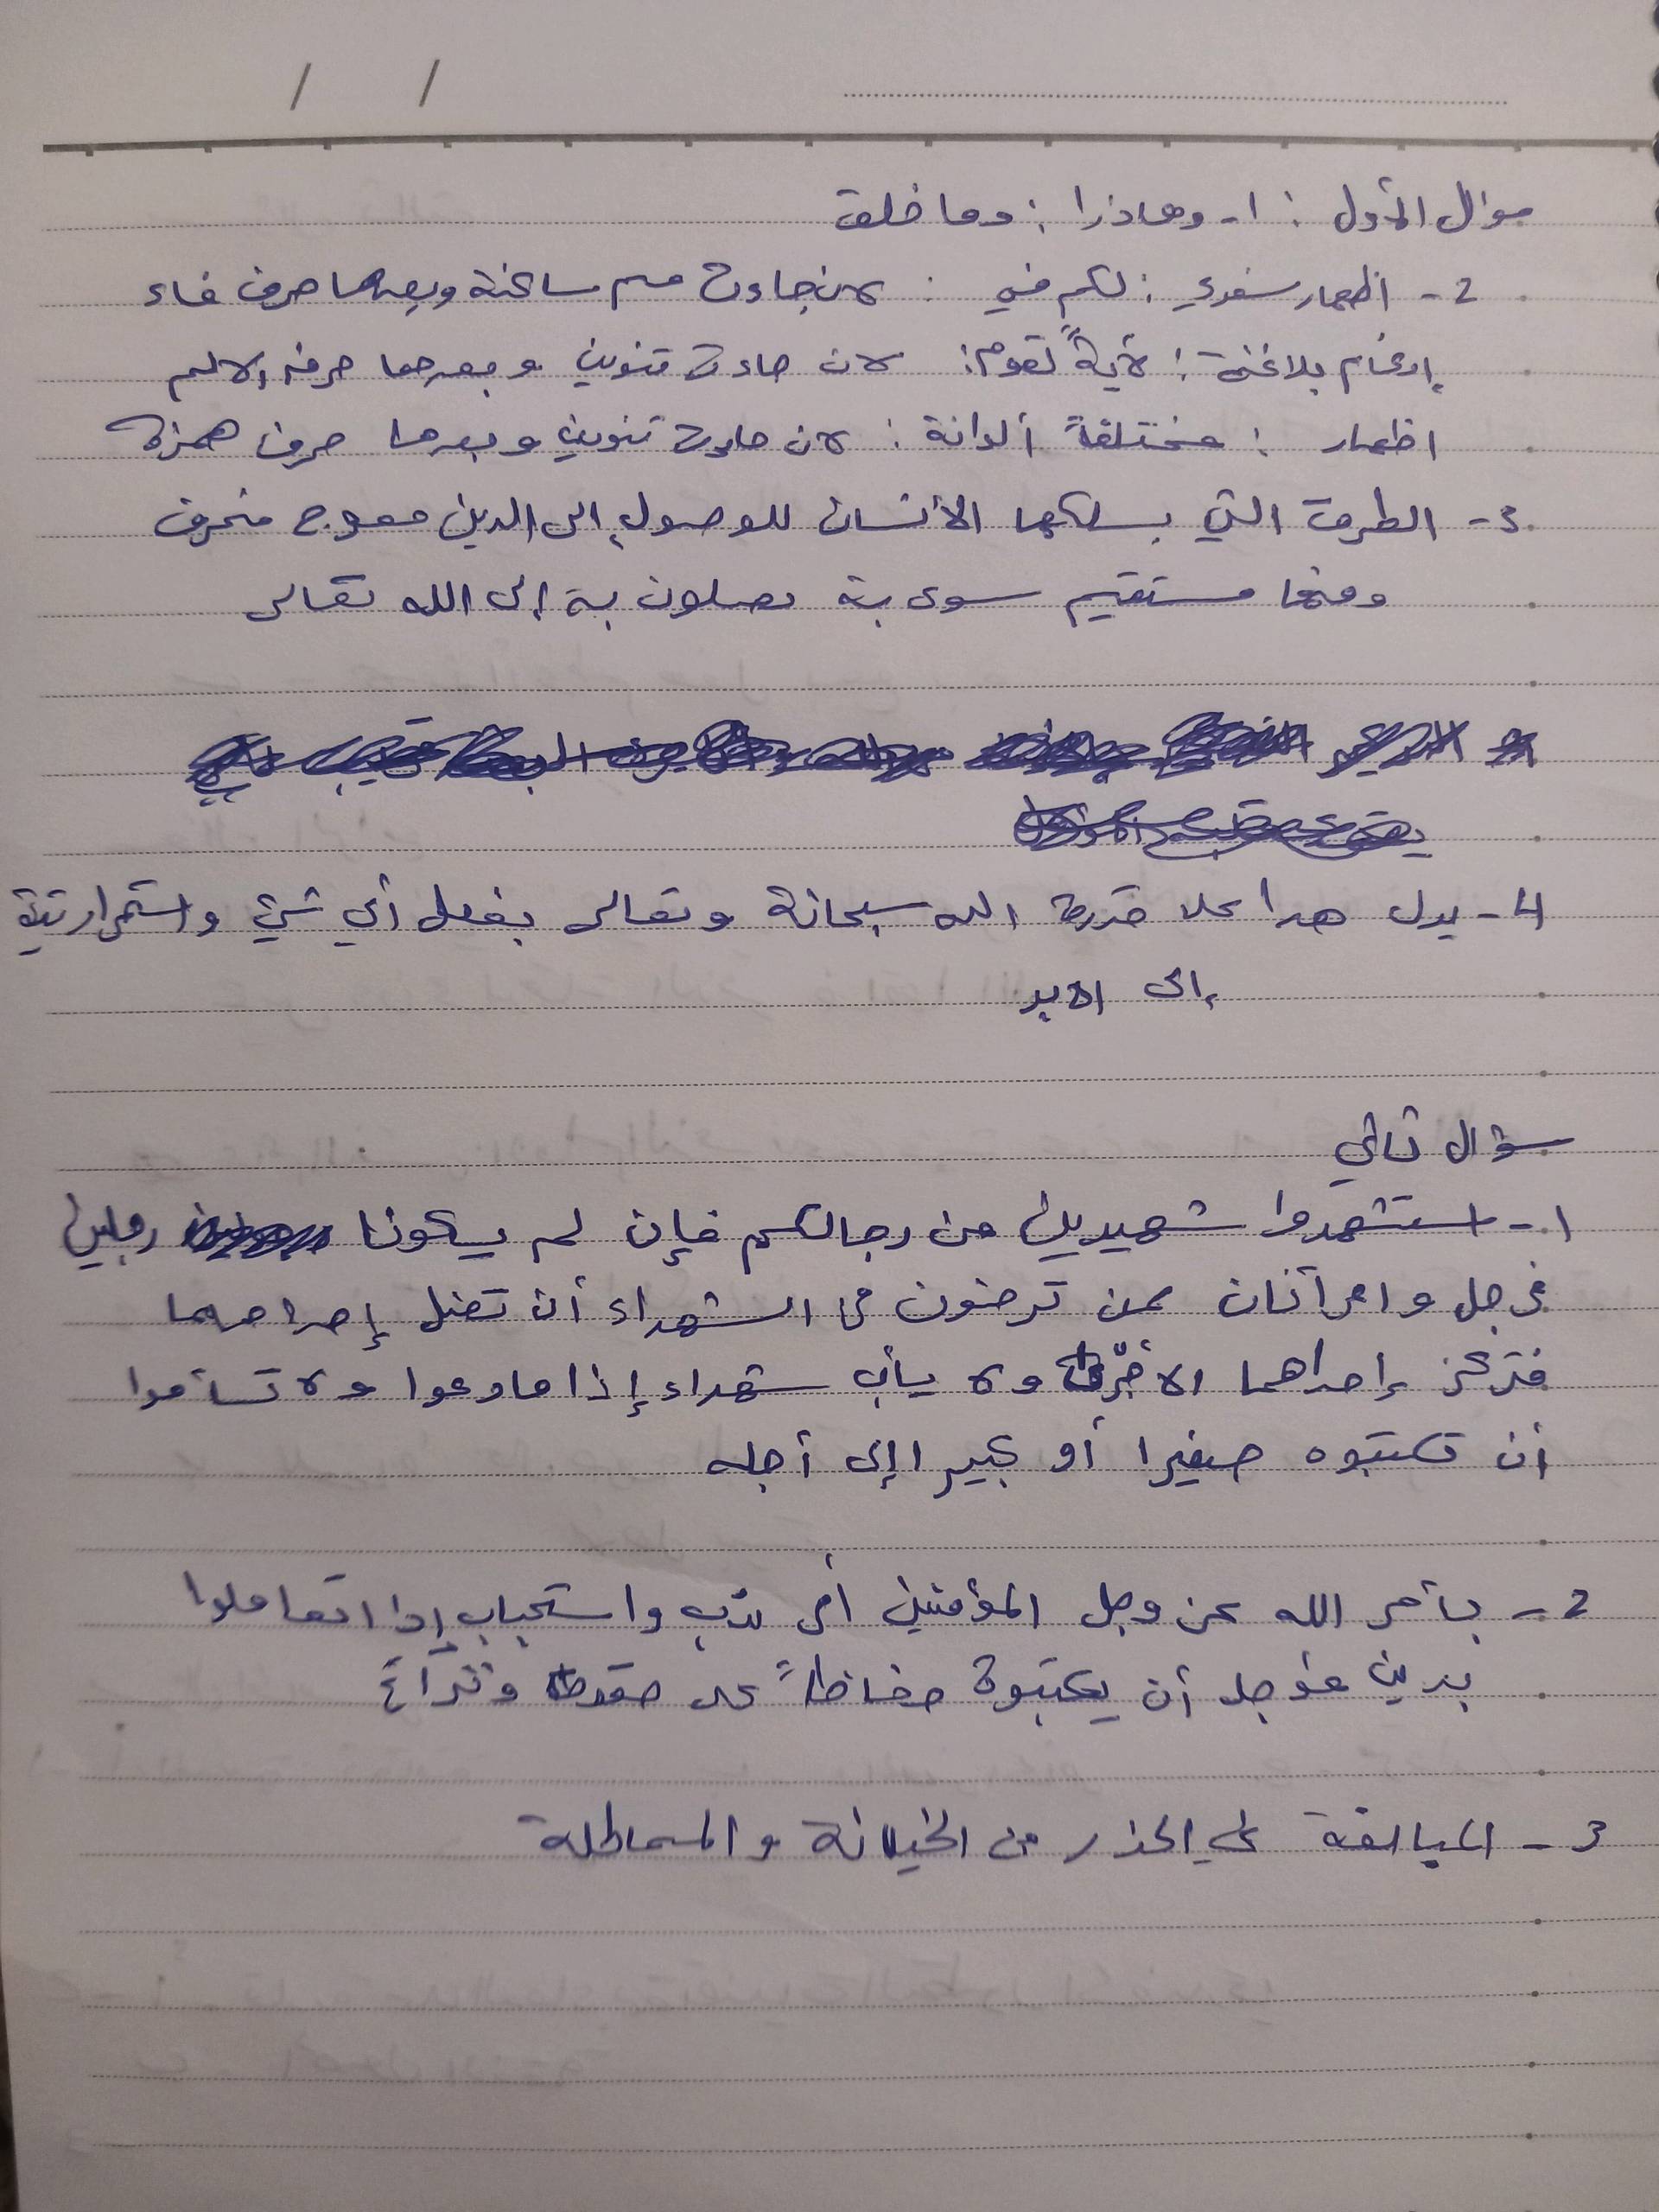 / /
سؤال الأول : 1- وماذرا : وما خلق
2- اظهار شفوي : لكم في : لان جاءت ميم ساكنة وبعدها حرف فاء
إدغام بلاغنة : لآيةً لقوم : لان جاءت تنوين و بعدها حرف الام
اظهار : مختلفاً ألوانة : لان جاءت تنوين و بعدها حرف همزة
3- الطرق التي يسلكها الأنسان للوصول إلى الدين معوج منحرف
ومنها مستقيم سوى بة يصلون بة إلى الله تعالى
4- يدل هدا علا قدرة الله سبحانة وتعالى بفعل أي شيء واستمراريتة
إلى الابد
سؤال ثاني
1- استشهدوا شهيدين من رجالكم فإن لم يكونا رجلين
فرجل و امرأتان ممن ترضون من الشهداء أن تضل إحداهما
فتذكر إحداهما الاخرى ولا يأب شهداء إذا مادعوا ولا تسأموا
أن تكتبوه صغيرا أو كبيرا إلى أجله
2- يأمر الله عز وجل المؤمنين أمر ندب واستحباب إذا تعاملوا
بدين مؤجل أن يكتبوة حفاظاً على حقة
3- المبالغة في الحذر من الخيانة والمماطلة